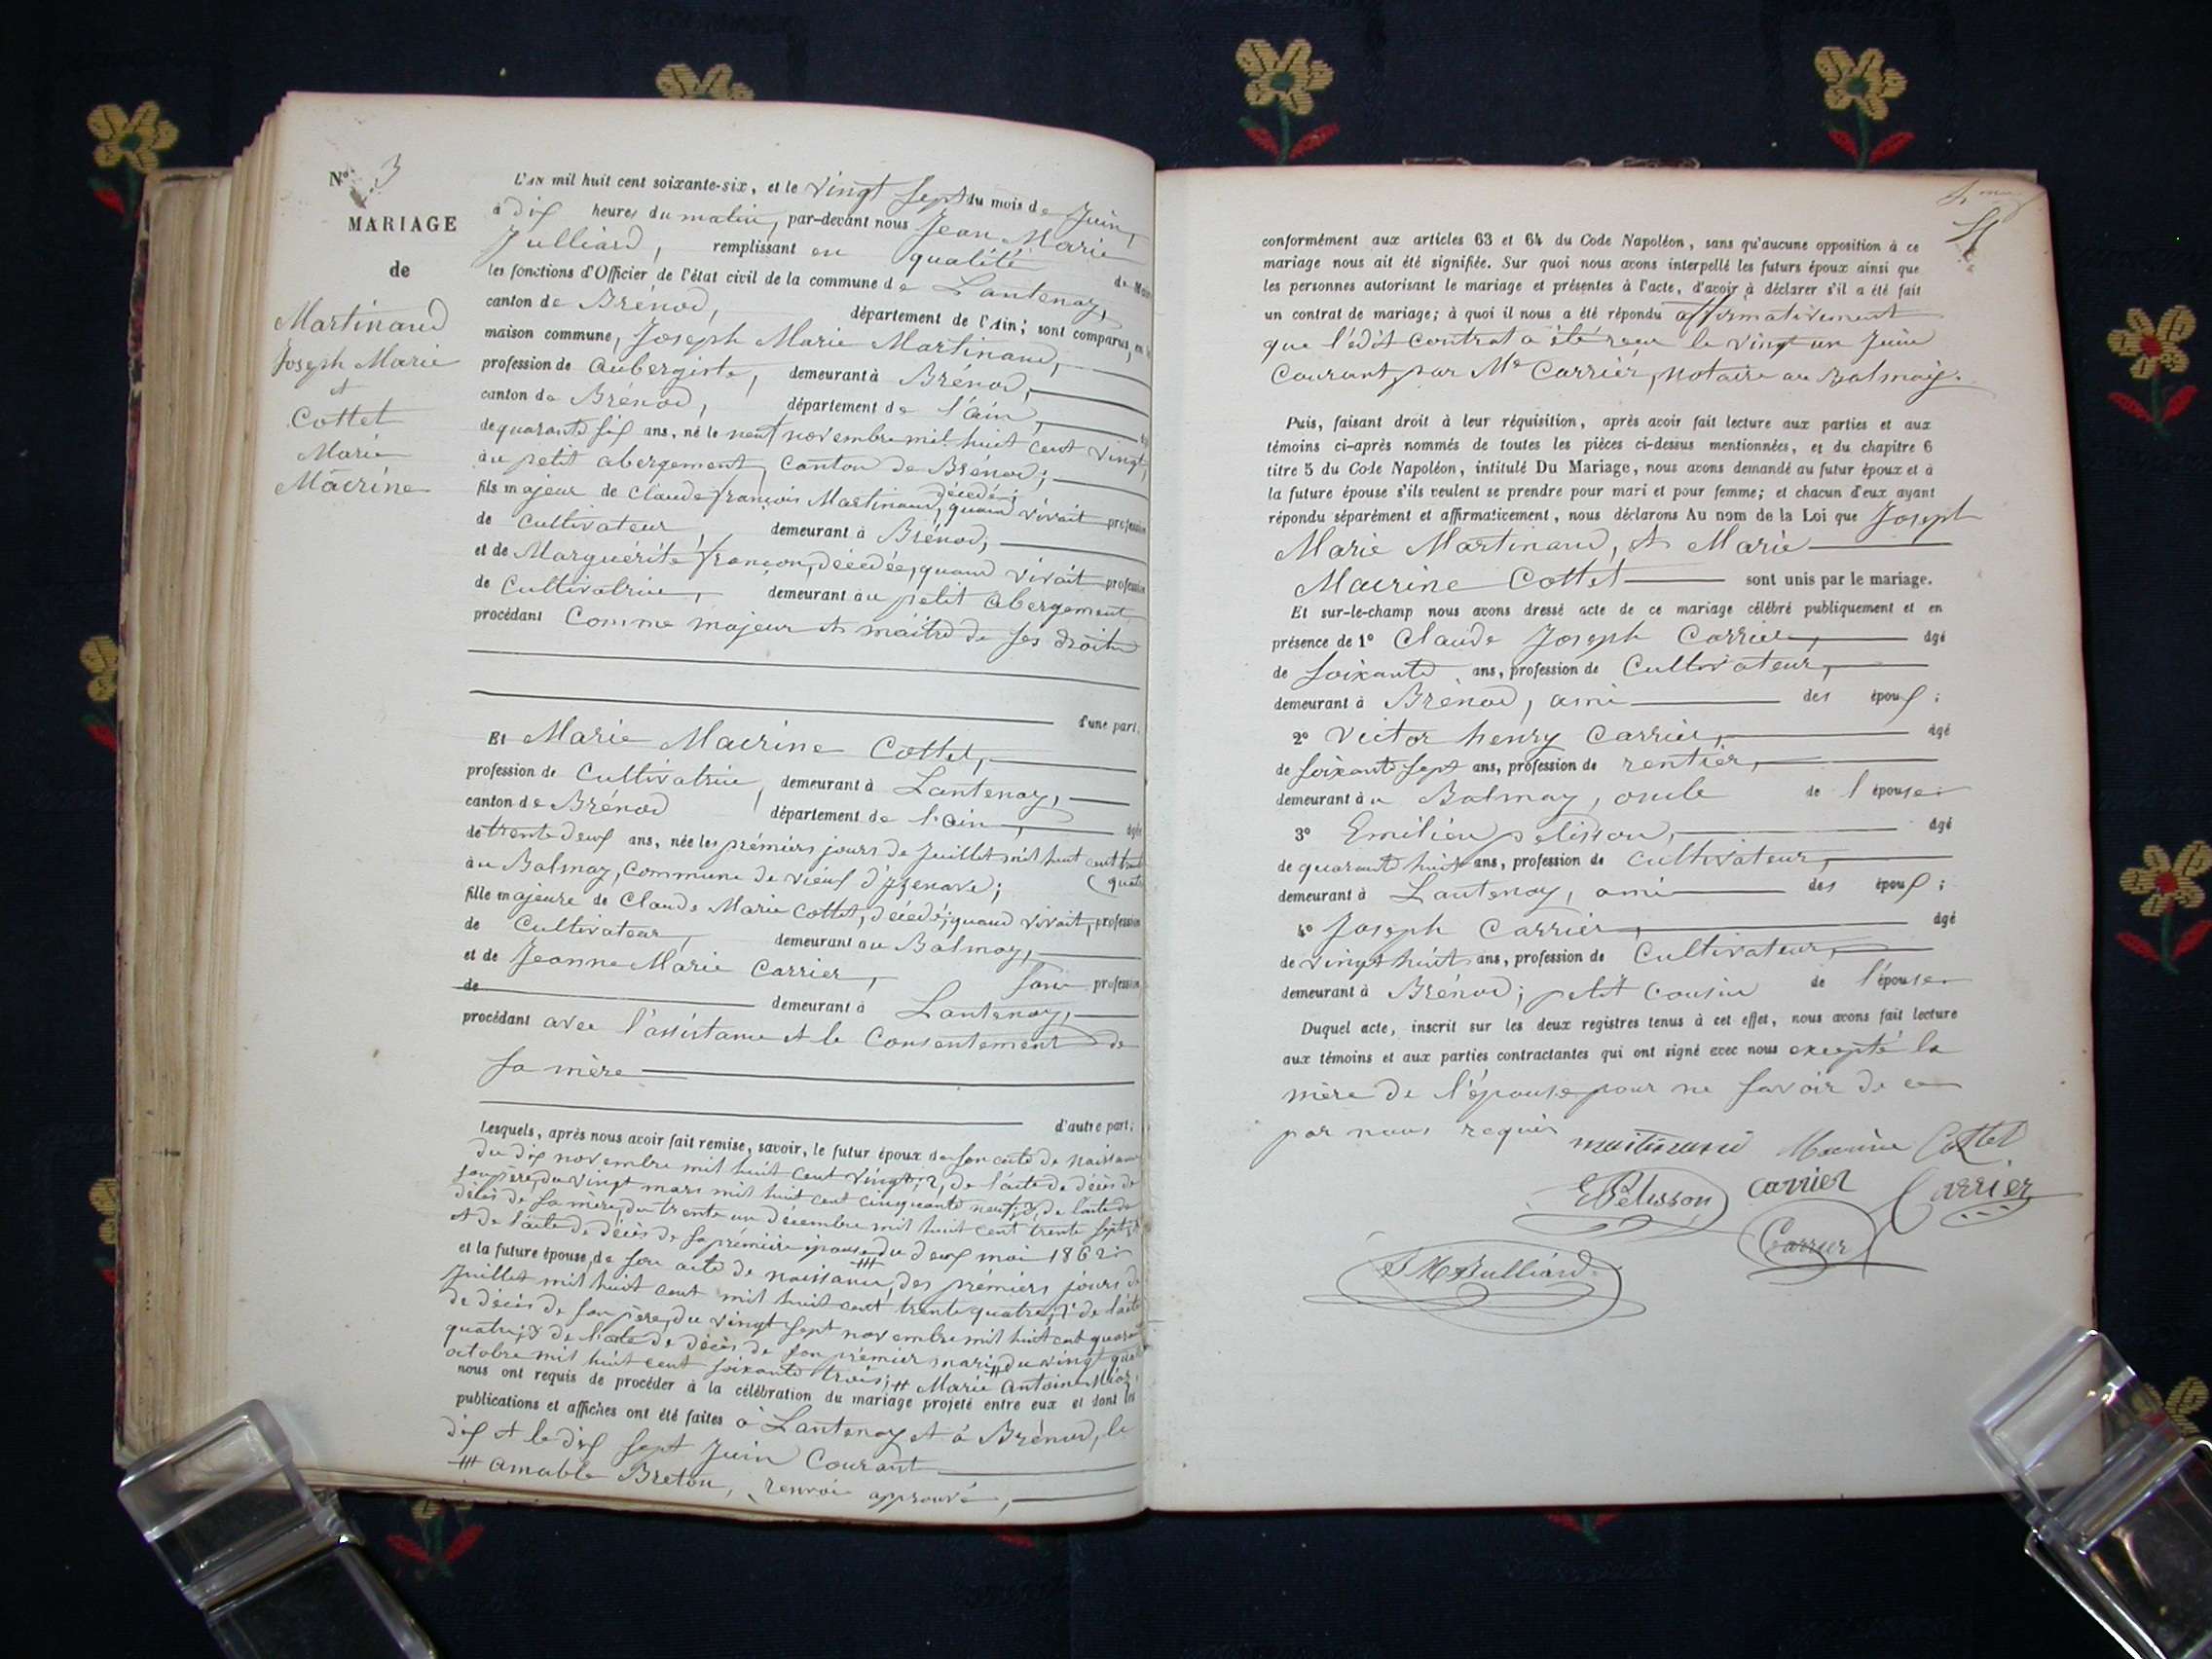 N° 3
MARIAGE
de
Martinand
Joseph Marie
et
Cottet
Marie
Macrine
L'AN mil huit cent soixante-six, et le vingt sept du mois de Juin,
à dix heures du matin, par-devant nous Jean Marie
Julliard, remplissant en qualité de Maire
les fonctions d'Officier de l'état civil de la commune de Lantenay,
canton de Brénod, département de l'Ain; sont comparus, en la
maison commune, Joseph Marie Martinand,
profession de aubergiste, demeurant à Brénod,
canton de Brénod, département de l'ain,
de quarante six ans, né le neuf novembre mil huit cent vingt,
au petit abergement, canton de Brénod;
fils majeur de Claude françois Martinand, décédé, quand vivait profession
de Cultivateur, demeurant à Brénod,
et de Marguérite françon, décédée, quand vivait profession
de Cultivatrice, demeurant au petit abergement
procédant Comme majeur et maître de ses droits
d'une part.
Et Marie Macrine Cottet,
profession de Cultivatrice, demeurant à Lantenay,
canton de Brénod, département de l'ain, âgée
de trente deux ans, née les prémiers jours de Juillet mil huit cent trente
(quatre
au Balmay, commune de vieux d'yzenave;
fille majeure de Claude Marie Cottet, décédé, quand vivait, profession
de Cultivateur, demeurant au Balmay,
et de Jeanne Marie Carrier, sans profession
de demeurant à Lantenay,
procédant avec l'assistance et le Consentement de
sa mère
d'autre part;
Lesquels, après nous avoir fait remise, savoir, le futur époux de son acte de naissance
du dix novembre mil huit cent vingt; 2° de l'acte de décès de
son père, du vingt mars mil huit cent cinquante neuf; 3° de l'acte de
décès de sa mère, du trente un décembre mil huit cent trente sept;
et de l'acte de décès de sa prémière épouse ⧻ du deux mai 1862;
et la future épouse, de son acte de naissance, des prémiers jours de
Juillet mil huit cent mil huit cent trente quatre; 2° de l'acte
de décès de son père, du vingt sept novembre mil huit cent quarante
quatre; 3° de l'acte de décès de son prémier mari ⧺ du vingt quatre
octobre mil huit cent soixante trois; ⧺ Marie Antoine
nous ont requis de procéder à la célébration du mariage projeté entre eux et dont les
publications et affiches ont été faites à Lantenay et à Brénod, le
dix et le dix sept Juin Courant
⧻ amable Breton, renvoi approuvé,
conformément aux articles 63 et 64 du Code Napoléon, sans qu'aucune opposition à ce
mariage nous ait été signifiée. Sur quoi nous avons interpellé les futurs époux ainsi que
les personnes autorisant le mariage et présentes à l'acte, d'avoir à déclarer s'il a été fait
un contrat de mariage; à quoi il nous a été répondu affirmativement
que l'édit contrat a été reçu le vingt un Juin
Courant, par Me Carrier, notaire au Balmay.
Puis, faisant droit à leur réquisition, après avoir fait lecture aux parties et aux
témoins ci-après nommés de toutes les pièces ci-dessus mentionnées, et du chapitre 6
titre 5 du Code Napoléon, intitulé Du Mariage, nous avons demandé au futur époux et à
la future épouse s'ils veulent se prendre pour mari et pour femme; et chacun d'eux ayant
répondu séparément et affirmativement, nous déclarons Au nom de la Loi que Joseph
Marie Martinand, et Marie
Macrine Cottet sont unis par le mariage.
Et sur-le-champ nous avons dressé acte de ce mariage célébré publiquement et en
présence de 1° Claude Joseph Carrier, âgé
de soixante ans, profession de Cultivateur,
demeurant à Brénod, ami des époux;
2° Victor henry Carrier, âgé
de soixante sept ans, profession de rentier,
demeurant au Balmay, oncle de l'épouse
3° Emilien pelisson, âgé
de quarante huit ans, profession de Cultivateur,
demeurant à Lantenay, ami des époux;
4° Joseph Carrier, âgé
de vingt huit ans, profession de Cultivateur,
demeurant à Brénod; petit cousin de l'épouse
Duquel acte, inscrit sur les deux registres tenus à cet effet, nous avons fait lecture
aux témoins et aux parties contractantes qui ont signé avec nous excepté la
mère de l'épouse pour ne savoir de ce
par nous requis
martinand Macrine Cottet
E Pelisson carrier Carrier
Carrier
J M Julliard